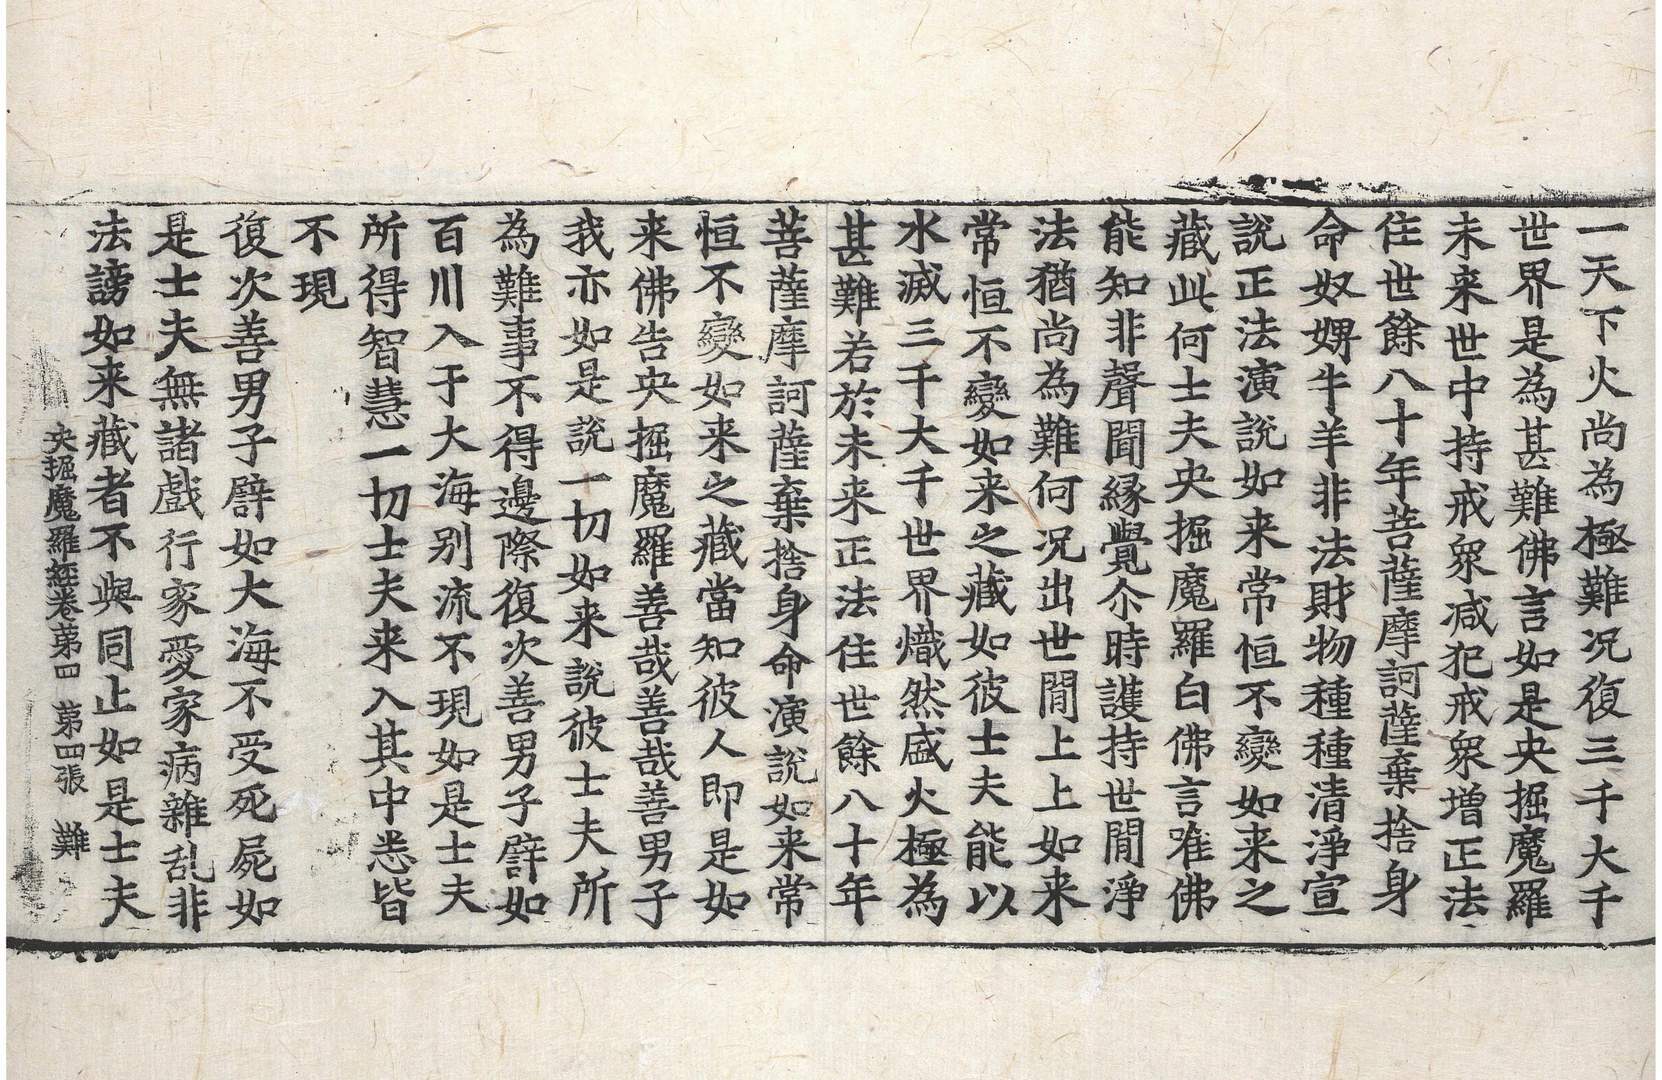 一天下火尚為極難况復三千大千
世界是為甚難佛言如是央掘魔羅
未來世中持戒衆减犯戒衆増正法
住世餘八十年菩薩摩訶薩棄捨身
命奴婢牛羊非法財物種種清淨宣
說正法演說如来常恒不變如来之
藏此何士夫央掘魔羅白佛言唯佛
能知非聲聞縁覺尒時護持世間淨
法猶尚為難何况出世間上上如来
常恒不變如来之藏如彼士夫能以
水滅三千大千世界熾然盛火極為
甚難若於未来正法住世餘八十年
菩薩摩訶薩棄捨身命演說如来常
恒不變如来之藏當知彼人即是如
来佛告央掘魔羅善哉善哉善男子
我亦如是說一切如来說彼士夫所
為難事不得邊際復次善男子譬如
百川入于大海别流不現如是士夫
所得智慧一切士夫来入其中悉皆
不現
復次善男子譬如大海不受死屍如
是士夫無諸戲行家愛家病雜乱非
法謗如来藏者不與同止如是士夫
央掘魔羅經卷第四　第四張　難